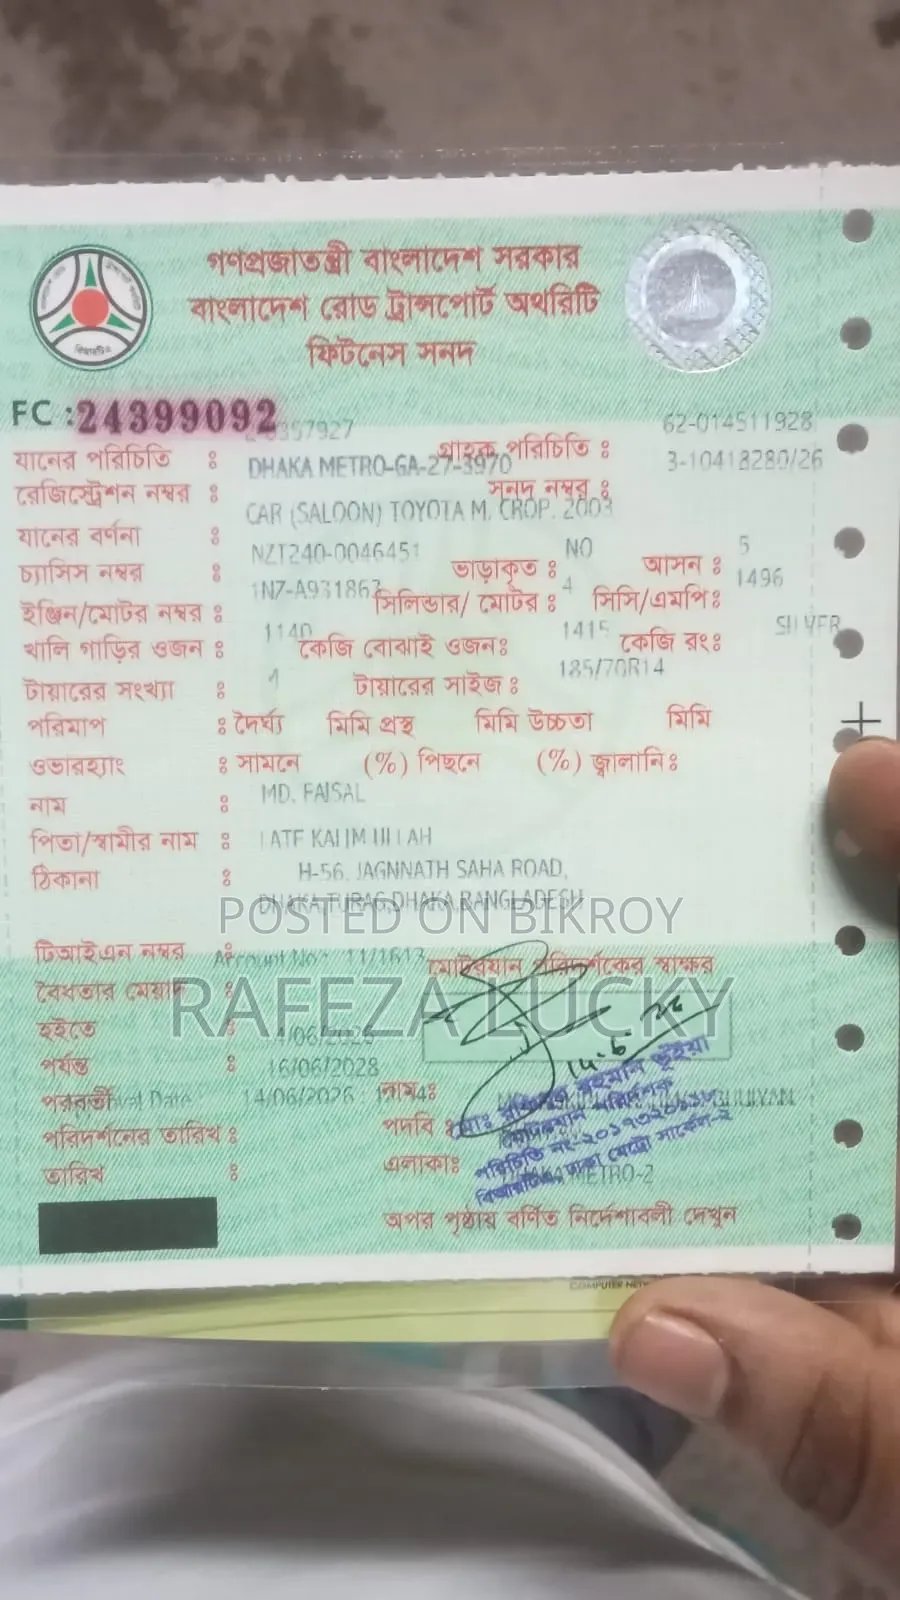 গণপ্রজাতন্ত্রী বাংলাদেশ সরকার
বাংলাদেশ রোড ট্রান্সপোর্ট অথরিটি
ফিটনেস সনদ
বিআরটিএ
FC :24399092
62-014511928
যানের পরিচিতি : গ্রাহক পরিচিতি :
DHAKA METRO-GA-27-3970 3-10418280/26
রেজিস্ট্রেশন নম্বর : সনদ নম্বর :
CAR (SALOON) TOYOTA M. CROP. 2003
যানের বর্ণনা :
NZT240-0046451 NO 5
চ্যাসিস নম্বর : ভাড়াকৃত : আসন :
1NZ-A931863 4 1496
ইঞ্জিন/মোটর নম্বর : সিলিন্ডার/ মোটর : সিসি/এমপি:
1140 1415 SILVER
খালি গাড়ির ওজন : কেজি বোঝাই ওজন: কেজি রং:
4 185/70R14
টায়ারের সংখ্যা : টায়ারের সাইজ :
পরিমাপ : দৈর্ঘ্য মিমি প্রস্থ মিমি উচ্চতা মিমি
ওভারহ্যাং : সামনে (%) পিছনে (%) জ্বালানি:
MD. FAISAL
নাম :
পিতা/স্বামীর নাম : LATE KALIM ULLAH
ঠিকানা : H-56, JAGNNATH SAHA ROAD,
DHAKA,TURAG,DHAKA,BANGLADESH
POSTED ON BIKROY
টিআইএন নম্বর : Account No : 11/1613
মোটরযান পরিদর্শকের স্বাক্ষর
বৈধতার মেয়াদ :
RAFEZA LUCKY
হইতে : 14/06/2026
14-6-26
পর্যন্ত : 16/06/2028
পরবর্তী 14/06/2026 : নাম:
পরিদর্শনের তারিখ : পদবি :
মোটরযান পরিদর্শক
তারিখ : এলাকা: DHAKA METRO-2
অপর পৃষ্ঠায় বর্ণিত নির্দেশাবলী দেখুন